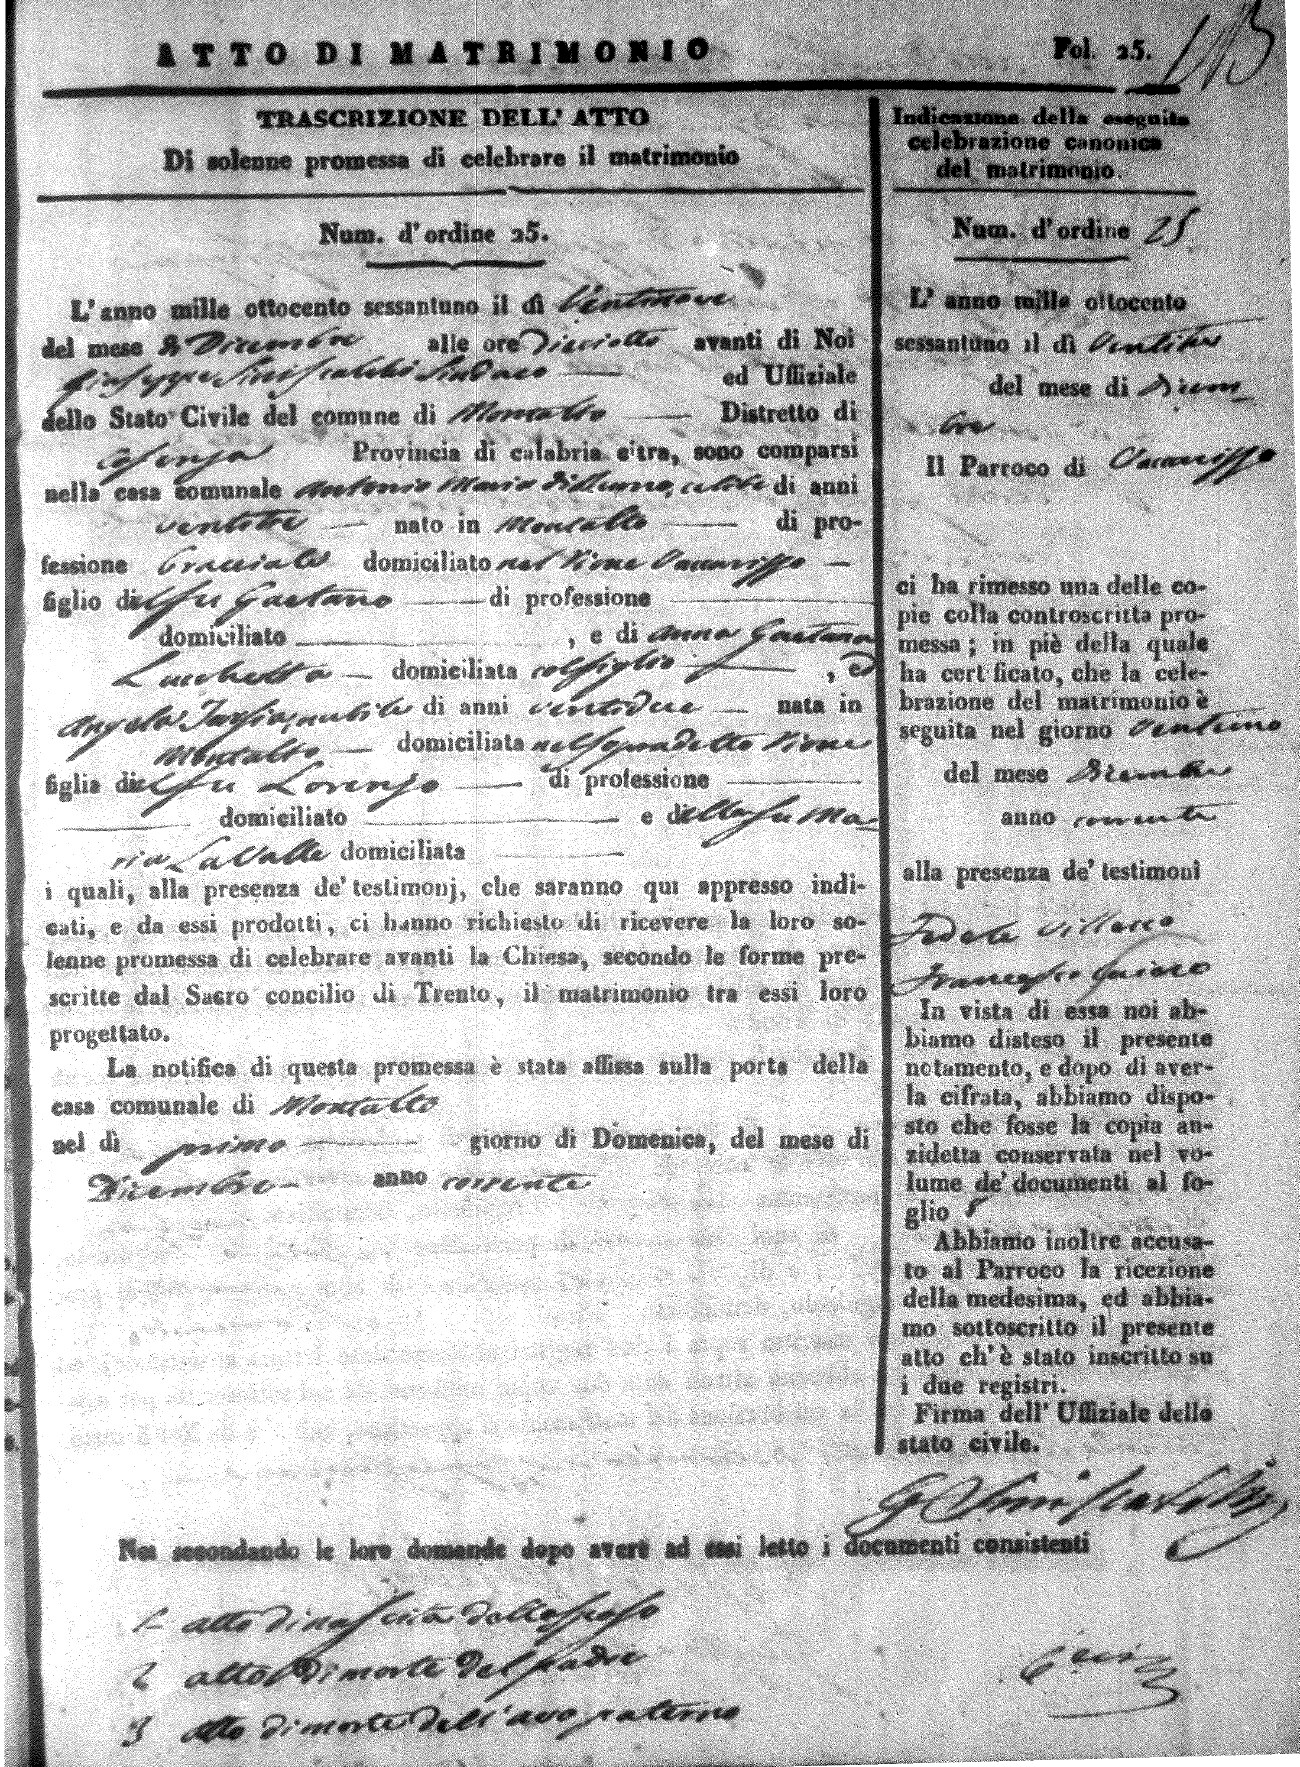 ATTO DI MATRIMONIO
Fol. 25.
TRASCRIZIONE DELL' ATTO
Di solenne promessa di celebrare il matrimonio
Num. d'ordine 25.
L'anno mille ottocento sessantuno il dì Ventinove
del mese di Dicembre alle ore dieciotto avanti di Noi
Giuseppe Siniscalchi Sindaco ed Uffiziale
dello Stato Civile del comune di Montalto Distretto di
Cosenza Provincia di calabria citra, sono comparsi
nella casa comunale Antonio Maria di anni
ventotre nato in Montalto di pro-
fessione bracciale domiciliato nel Rione Vaccarizzo
figlio del fu Gaetano di professione
domiciliato , e di Anna Gaetana
Lucchetta domiciliata col figlio , ed
Angela nubile di anni ventidue nata in
Montalto domiciliata nel sopradetto Rione
figlia del fu Lorenzo di professione
domiciliato e della fu Ma-
ria La Valle domiciliata
i quali, alla presenza de' testimonj, che saranno qui appresso indi-
cati, e da essi prodotti, ci hanno richiesto di ricevere la loro so-
lenne promessa di celebrare avanti la Chiesa, secondo le forme pre-
scritte dal Sacro concilio di Trento, il matrimonio tra essi loro
progettato.
La notifica di questa promessa è stata affissa sulla porta della
casa comunale di Montalto
nel dì primo giorno di Domenica, del mese di
Dicembre anno corrente
Indicazione della eseguita
celebrazione canonica
del matrimonio.
Num. d'ordine 25
L' anno mille ottocento
sessantuno il dì
del mese di Dicem
bre
Il Parroco di Vaccarizzo
ci ha rimesso una delle co-
pie colla controscritta pro-
messa; in piè della quale
ha cert ficato, che la cele-
brazione del matrimonio è
seguita nel giorno
del mese Dicembre
anno corrente
alla presenza de' testimoni
Fedele Villacco
Francesco
In vista di essa noi ab-
biamo disteso il presente
notamento, e dopo di aver-
la cifrata, abbiamo dispo-
sto che fosse la copia an-
zidetta conservata nel vo-
lume de' documenti al fo-
glio 8
Abbiamo inoltre accusa-
to al Parroco la ricezione
della medesima, ed abbia-
mo sottoscritto il presente
atto ch' è stato inscritto su
i due registri.
Firma dell' Uffiziale dello
stato civile.
G Siniscalchi
Noi secondando le loro domande dopo avere ad essi letto i documenti consistenti
1 atto di nascita dello sposo
2 atto di morte del padre
3 atto di morte dell'avo paterno